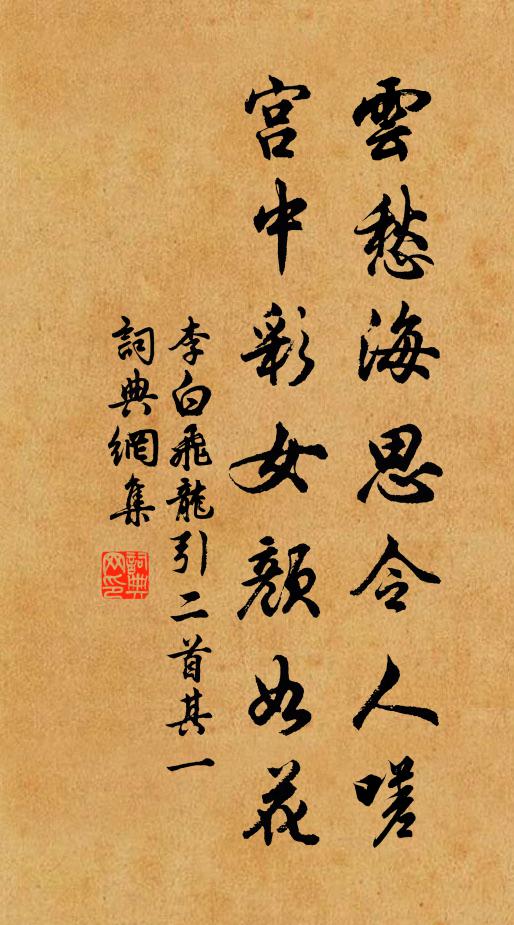 雲愁海思令人嗟
宫中彩女顏如花
李白飛龍引二首其一
詞典網集
詞典網印